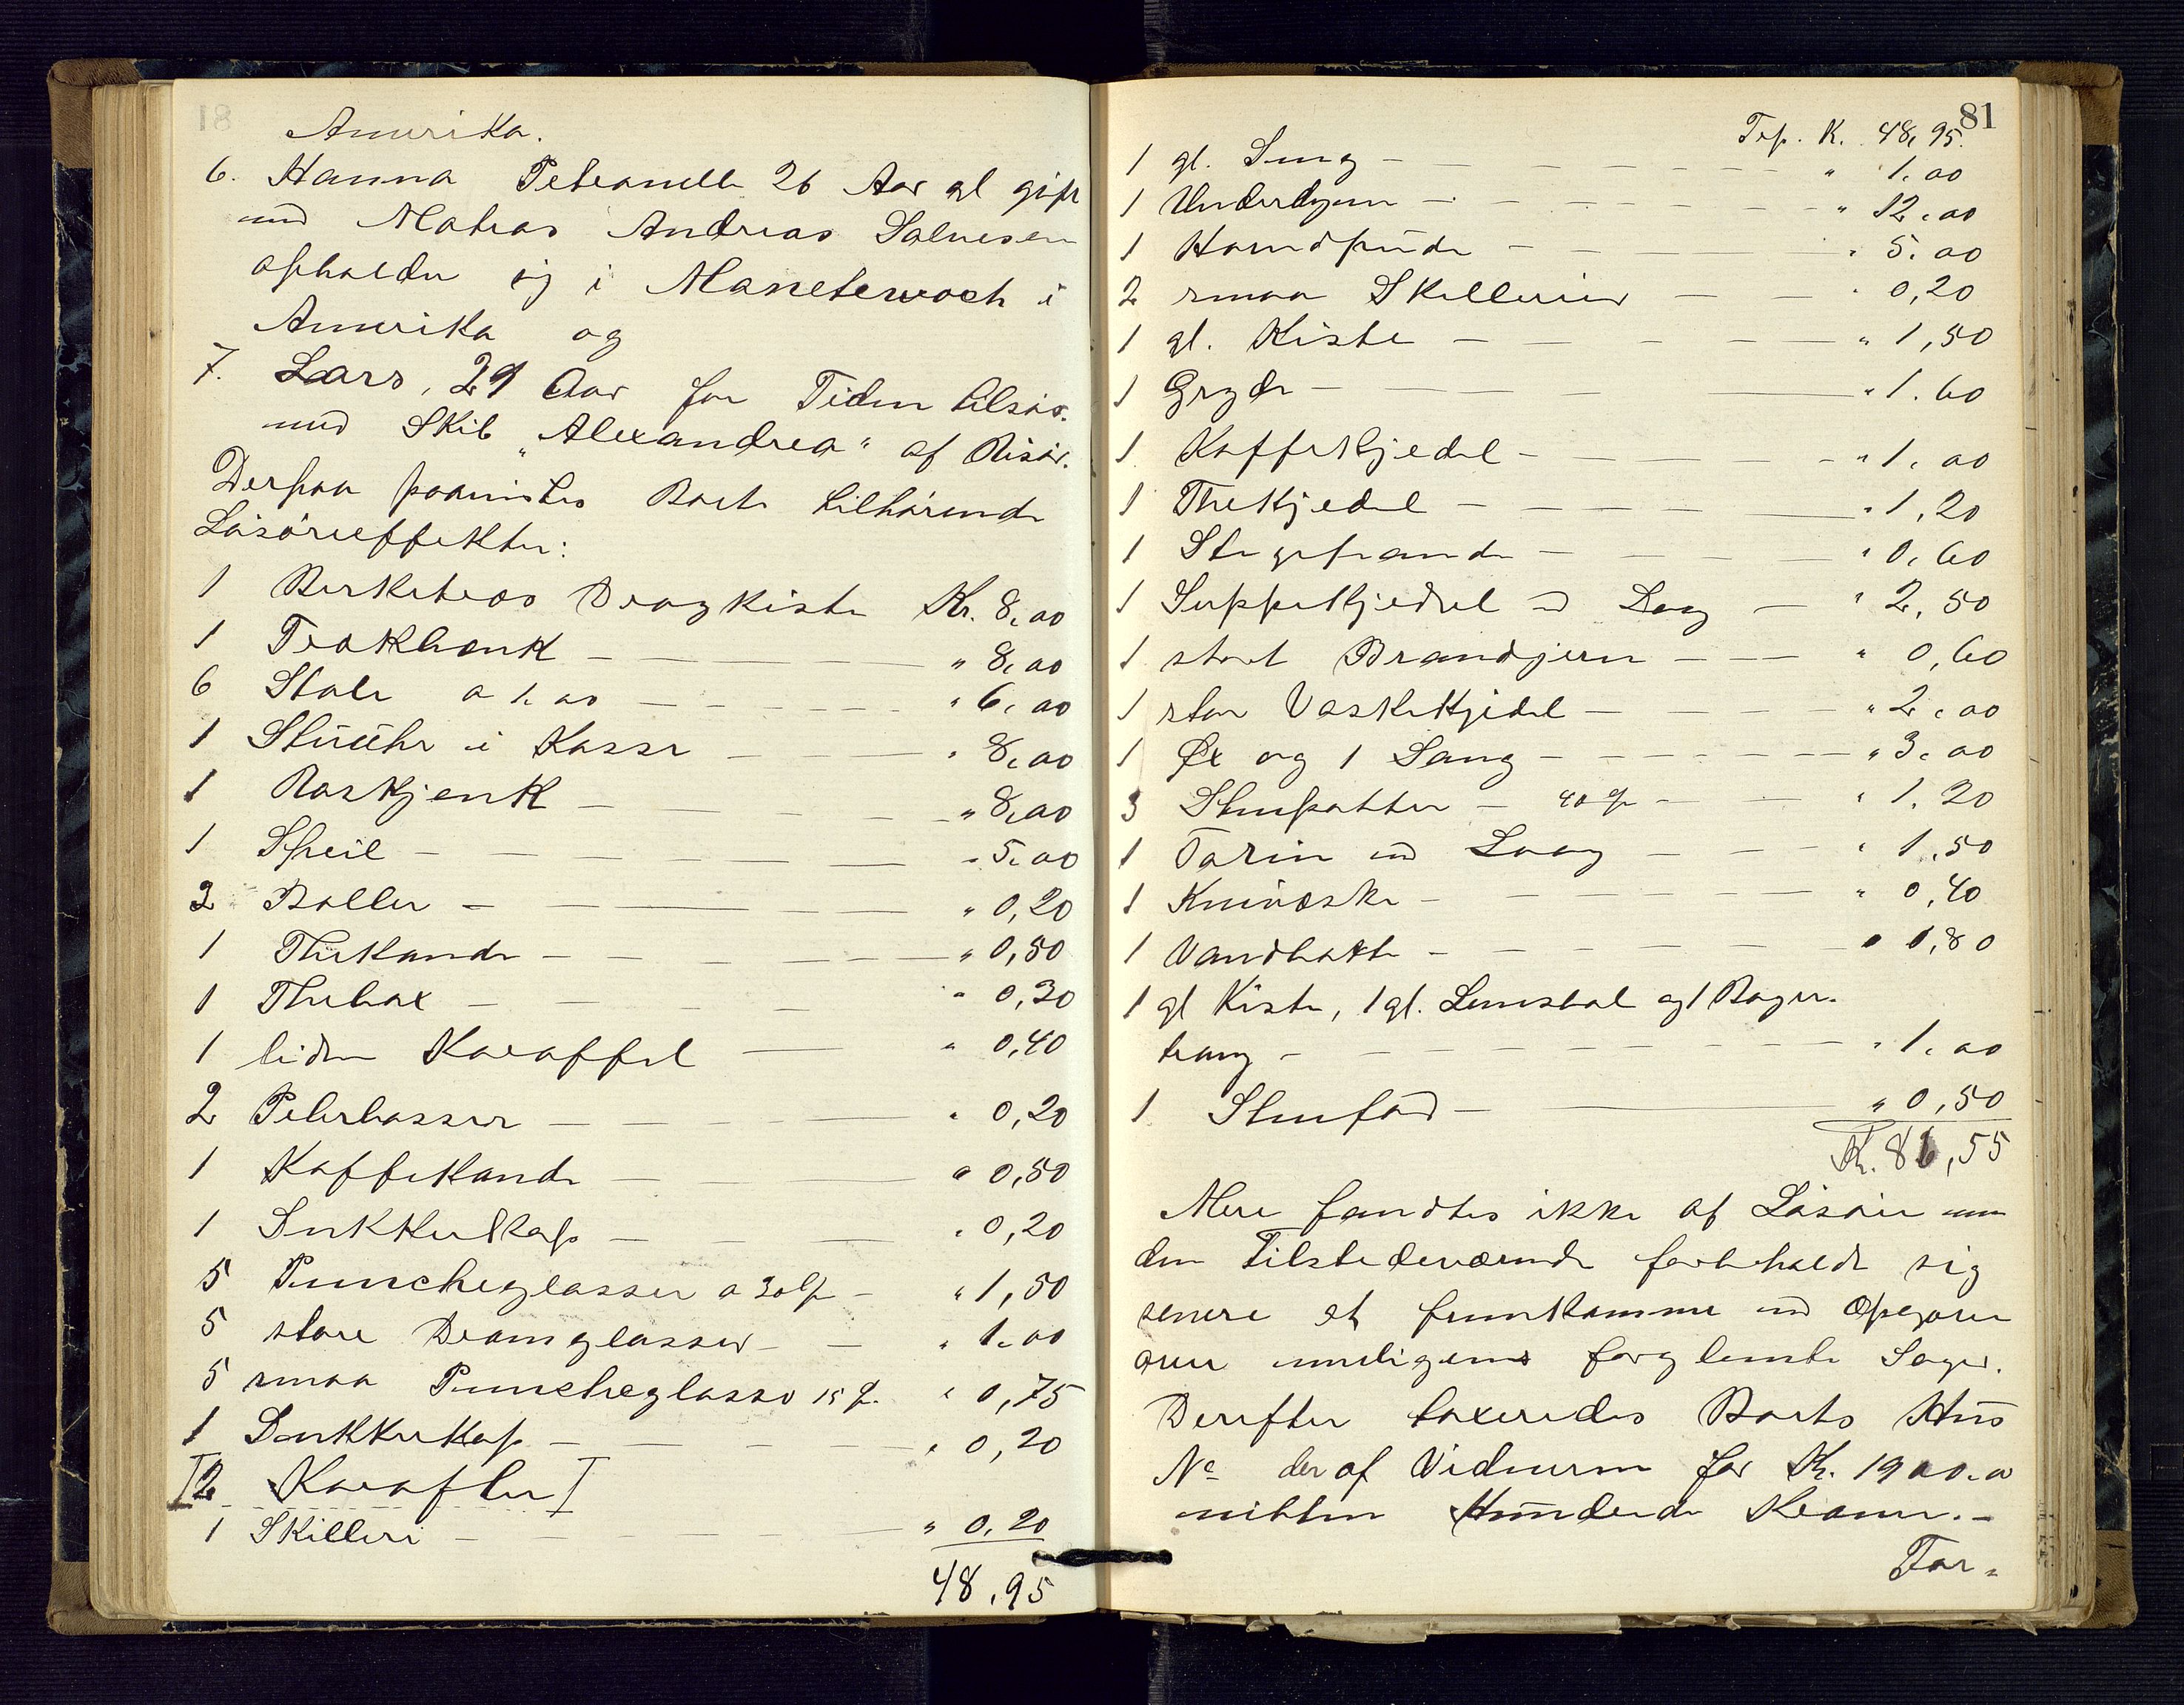 Amerika.
6. Hanna Petronelle 26 Aar gl gift
med Matias Andreas Salvesen
opholder sig i Maneterwoch i
Amerika og
7. Lars, 29 Aar for Tiden tilsøs.
med Skib „Alexandrea“ af Risør.
Derpaa paavistes Boets tilhørende
Løsøreeffekter:
1 Birketræs Dragkiste Kr. 8,00
1 Trækbænk " 8,00
6 Stole a 1,00 " 6,00
1 Stueuhr i Kasse " 8,00
1 Buskjenk " 8,00
1 Speil " 5,00
2 Boller " 0,20
1 Thekande " 0,50
1 Thebox " 0,30
1 liden Karaffel " 0,40
2 Peberbøsser " 0,20
1 Kaffekande " 0,50
1 Sukkerkop " 0,20
5 Puncheglasser a 30 Ø " 1,50
5 store Dramglasser " 1,00
5 smaa Puncheglasse 15 Ø. " 0,75
1 Sukkerkop " 0,20
[2 Karafler]
1 Skilleri " 0,20
48,95
81
Trp. K. 48,95.
1 gl. Seng " 1,00
1 Underdyne " 12,00
1 Hovedpude " 5,00
2 smaa Skillerier " 0,20
1 gl. Kiste " 1,50
1 Gryde " 1.60
1 Kaffekjedel " 1,00
1 Thekjedel " 1,20
1 Stegepande " 0,60
1 Suppekjedel m Laag " 2,50
1 stort Brandjern " 0,60
1 stor Vaskekjedel " 2,00
1 Øx og 1 Saug " 3,00
3 Stenpotter 40 Ø " 1,20
1 Tarin med Laag " 1,50
1 Knivæske " 0,40
1 Vandbøtte " 0,80
1 gl Kiste, 1 gl. Lænestol og 1 Bager-
traug " 1,00
1 Stenfad " 0,50
Kr. 86,55
Mere fandtes ikke af Løsøre men
den Tilstedeværende forbeholdt sig
senere at fremkomme med Opgaver
over muligens forglemte Sager.
Derefter taxeredes Boets Hus
No der af Vidnerne for Kr. 1900.00
nitten Hundrede Kroner.-
For-